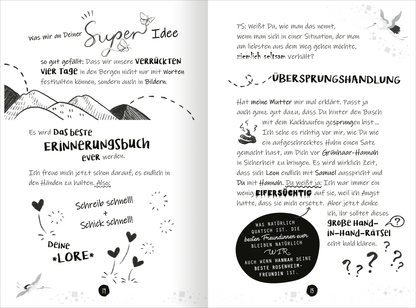 Was mir an Deiner Super Idee
so gut gefällt: Dass wir unsere VERRÜCKTEN
VIER TAGE in den Bergen nicht nur mit Worten
festhalten können, sondern auch in Bildern.
Es wird DAS BESTE
ERINNERUNGSBUCH
EVER werden.
Ich freue mich jetzt schon darauf, es endlich in
den Händen zu halten. Also:
Schreib schnell!
+
Schick schnell!
DEINE
*LORE*
PS: Weißt Du, wie man das nennt,
wenn man sich in einer Situation, der man
am liebsten aus dem Weg gehen möchte,
ziemlich seltsam verhält?
ÜBERSPRUNGSHANDLUNG
Hat meine Mutter mir mal erklärt. Passt ja
auch ganz gut dazu, dass Du hinter den Busch
mit dem Kackhaufen gesprungen bist ...
Ich sehe es richtig vor mir, wie Du wie
ein aufgeschrecktes Huhn einen Satz
gemacht hast, um Dich vor Grünhaar-Hannah
in Sicherheit zu bringen. Es wird wirklich Zeit,
dass sich Leon endlich mit Samuel ausspricht und
Du mit Hannah. Du weißt ja: Ich war immer ein
wenig EIFERSÜCHTIG auf sie, weil ich Angst
hatte, dass sie mich ersetzt. Aber jetzt denke
ich, ihr solltet dieses
GROSSE HAND-
IN-HAND-RÄTSEL
echt bald klären.
WAS NATÜRLICH
QUATSCH IST. DIE
besten Freundinnen ever
BLEIBEN NATÜRLICH
WIR,
AUCH WENN HANNAH DEINE
BESTE ROSENHEIM-
FREUNDIN IST.
? ? ? ? ?